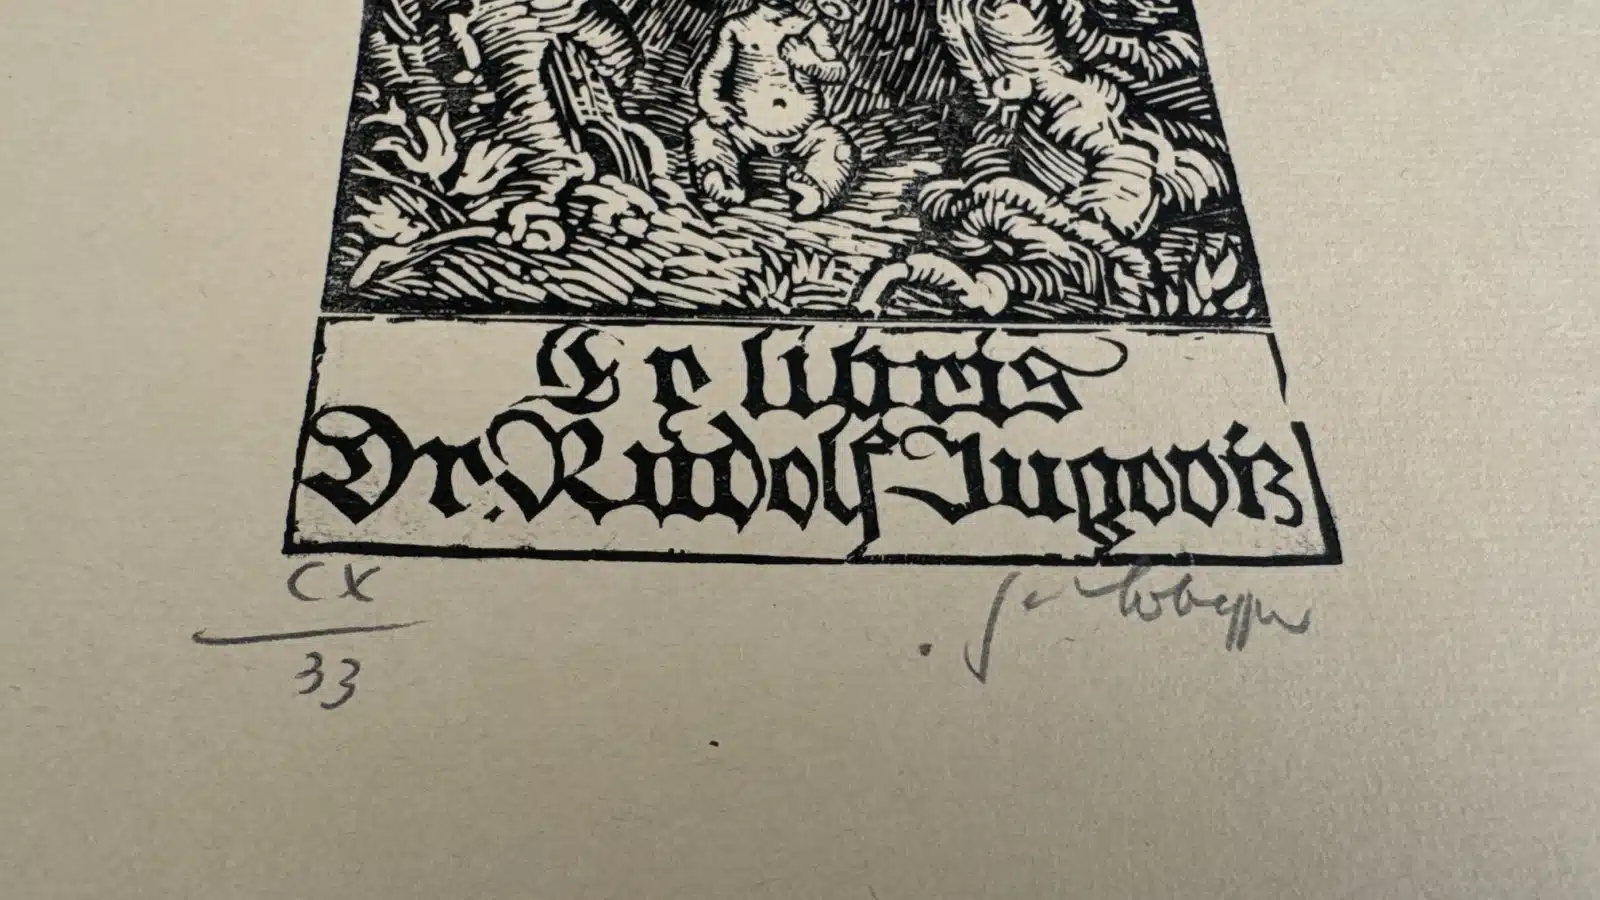 Ex libris
Dr. Rudolf Jugoviz
CX
33